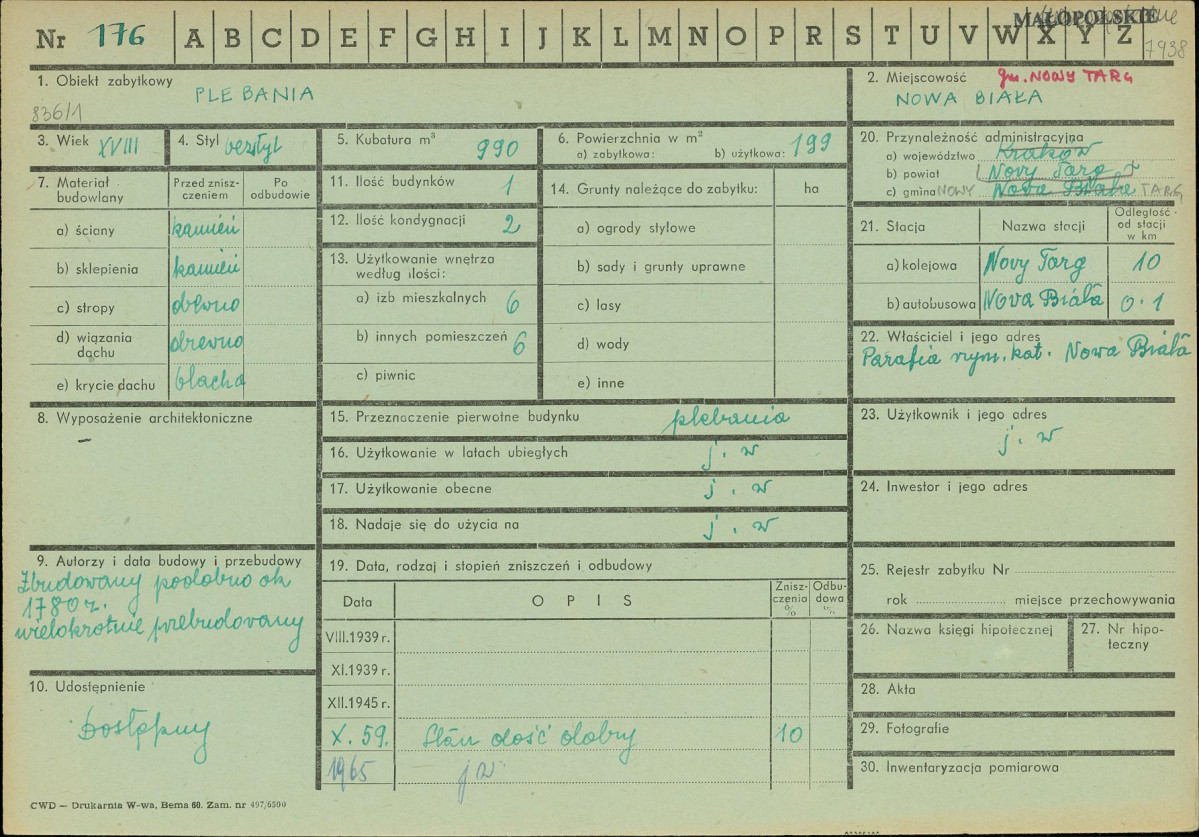 Nr 176 A B C D E F G H I J K L M N O P R S T U V W X Y Z
MAŁOPOLSKIE
7938
1. Obiekt zabytkowy
PLEBANIA
836/1
2. Miejscowość gm. NOWY TARG
NOWA BIAŁA
3. Wiek XVIII
4. Styl bezstyl
5. Kubatura m³ 990
6. Powierzchnia w m²
a) zabytkowa: b) użytkowa: 199
7. Materiał budowlany
Przed zniszczeniem
Po odbudowie
a) ściany kamień
b) sklepienia kamień
c) stropy drewno
d) wiązania dachu drewno
e) krycie dachu blacha
8. Wyposażenie architektoniczne
–
9. Autorzy i data budowy i przebudowy
Zbudowany podobno ok
1780 r.
wielokrotnie przebudowany
10. Udostępnienie
Dostępny
11. Ilość budynków 1
12. Ilość kondygnacji 2
13. Użytkowanie wnętrza
według ilości:
a) izb mieszkalnych 6
b) innych pomieszczeń 6
c) piwnic
14. Grunty należące do zabytku: ha
a) ogrody stylowe
b) sady i grunty uprawne
c) lasy
d) wody
e) inne
15. Przeznaczenie pierwotne budynku plebania
16. Użytkowanie w latach ubiegłych j. w
17. Użytkowanie obecne j. w
18. Nadaje się do użycia na j. w
19. Data, rodzaj i stopień zniszczeń i odbudowy
Data OPIS Zniszczenia % Odbudowa %
VIII.1939 r.
XI.1939 r.
XII.1945 r.
X. 59. Stan dość dobry 10
1965 j w
20. Przynależność administracyjna
a) województwo Kraków
b) powiat Nowy Targ
c) gmina NOWY Nowa Biała TARG
21. Stacja Nazwa stacji Odległość od stacji w km
a) kolejowa Nowy Targ 10
b) autobusowa Nowa Biała 0.1
22. Właściciel i jego adres
Parafia rzym. kat. Nowa Biała
23. Użytkownik i jego adres
j. w
24. Inwestor i jego adres
25. Rejestr zabytku Nr
rok miejsce przechowywania
26. Nazwa księgi hipotecznej
27. Nr hipoteczny
28. Akta
29. Fotografie
30. Inwentaryzacja pomiarowa
CWD — Drukarnia W-wa, Bema 60. Zam. nr 497/6500